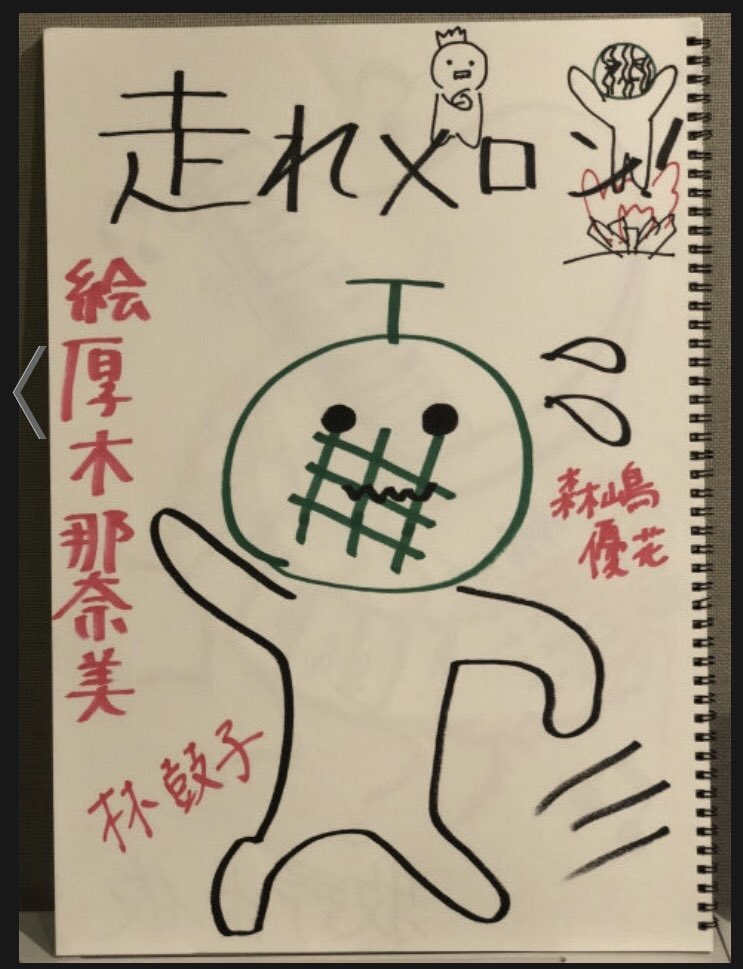 走れメロン
絵
厚木那奈美
森嶋
優花
林鼓子